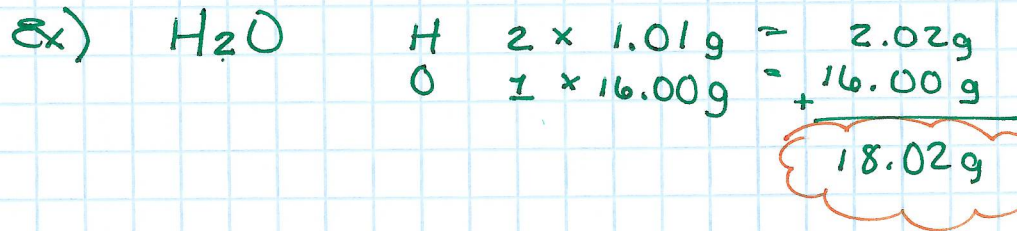 Ex) H₂O H 2 × 1.01g = 2.02g
O 1 × 16.00g = + 16.00 g
18.02g